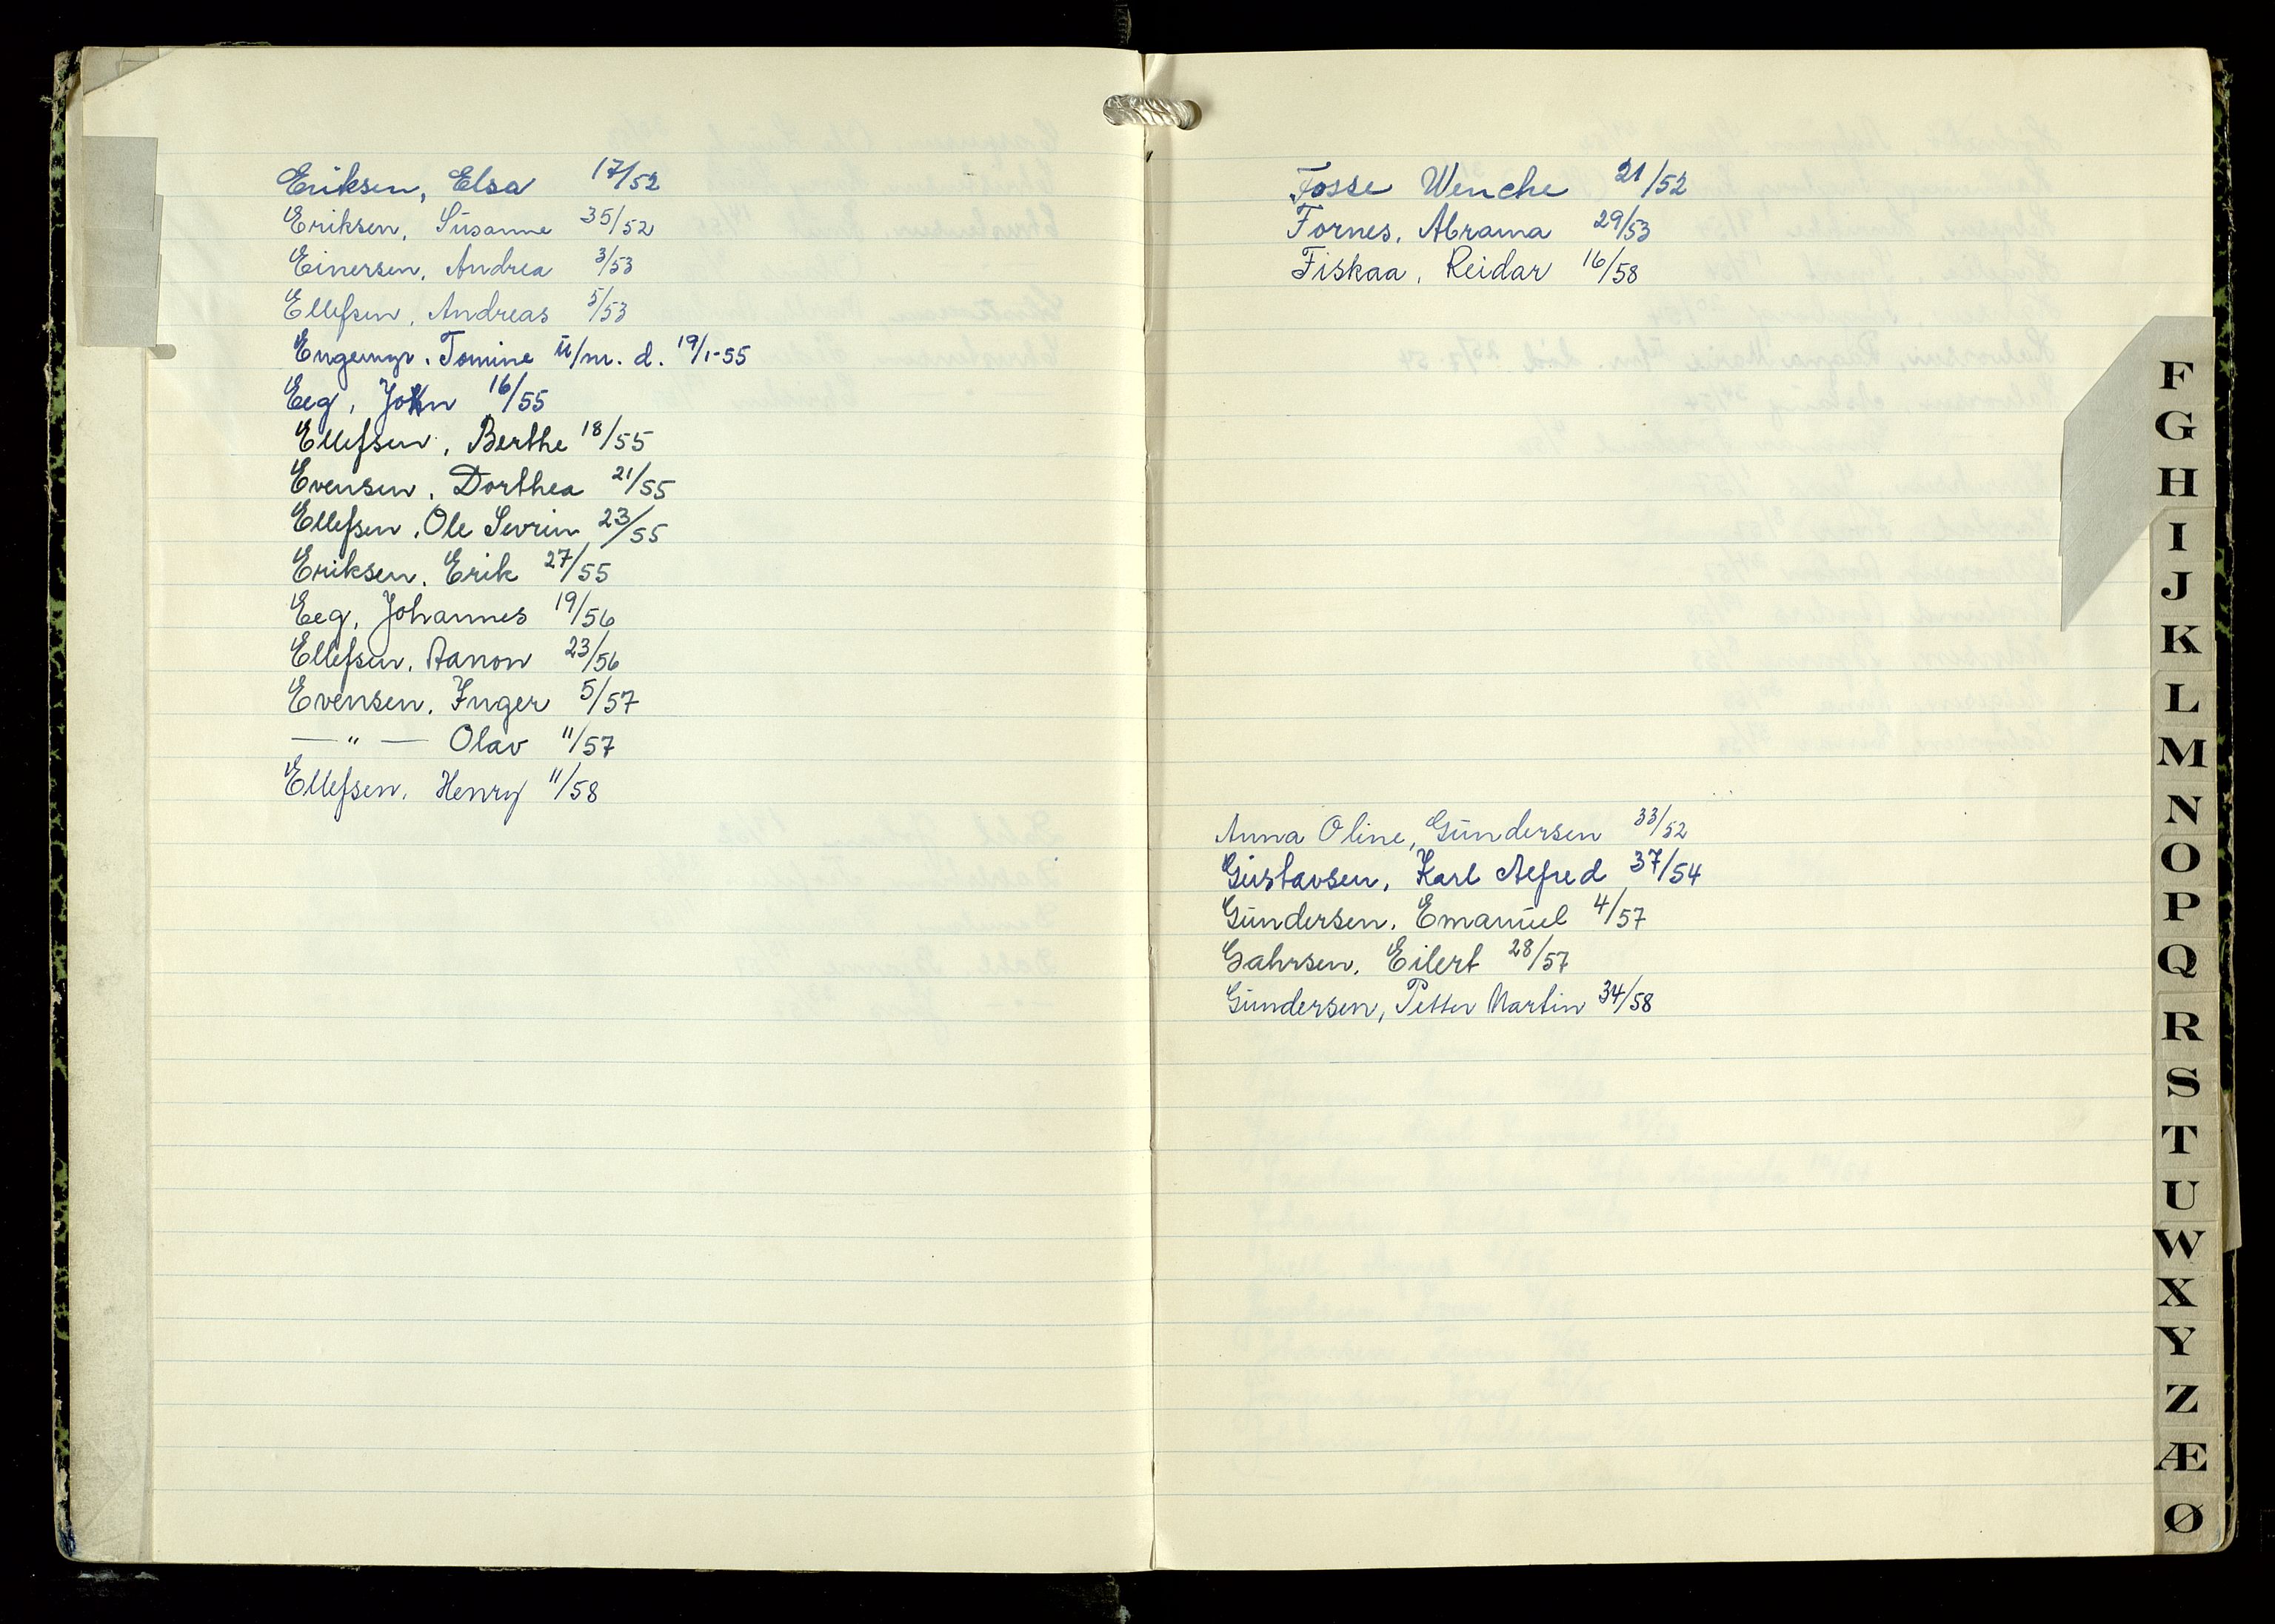 Eriksen, Elsa 17/52
Eriksen, Susanne 35/52
Einersen, Andrea 3/53
Ellefsen, Andreas 5/53
Engemyr, Tomine u/m. d. 19/1-55
Eeg, John 16/55
Ellefsen, Berthe 18/55
Evensen, Dorthea 21/55
Ellefsen, Ole Sevrin 23/55
Eriksen, Erik 27/55
Eeg, Johannes 19/56
Ellefsen, Aanon 23/56
Evensen, Inger 5/57
— " — Olav 11/57
Ellefsen, Henry 11/58
Fosse Wenche 21/52
Fornes, Abrama 29/53
Fiskaa, Reidar 16/58
Anna Oline, Gundersen 33/52
Gustavsen, Karl Alfred 37/54
Gundersen, Emanuel 4/57
Gahrsen, Eilert 28/57
Gundersen, Petter Martin 34/58
F
G
H
I
J
K
L
M
N
O
P
Q
R
S
T
U
W
X
Y
Z
Æ
Ø